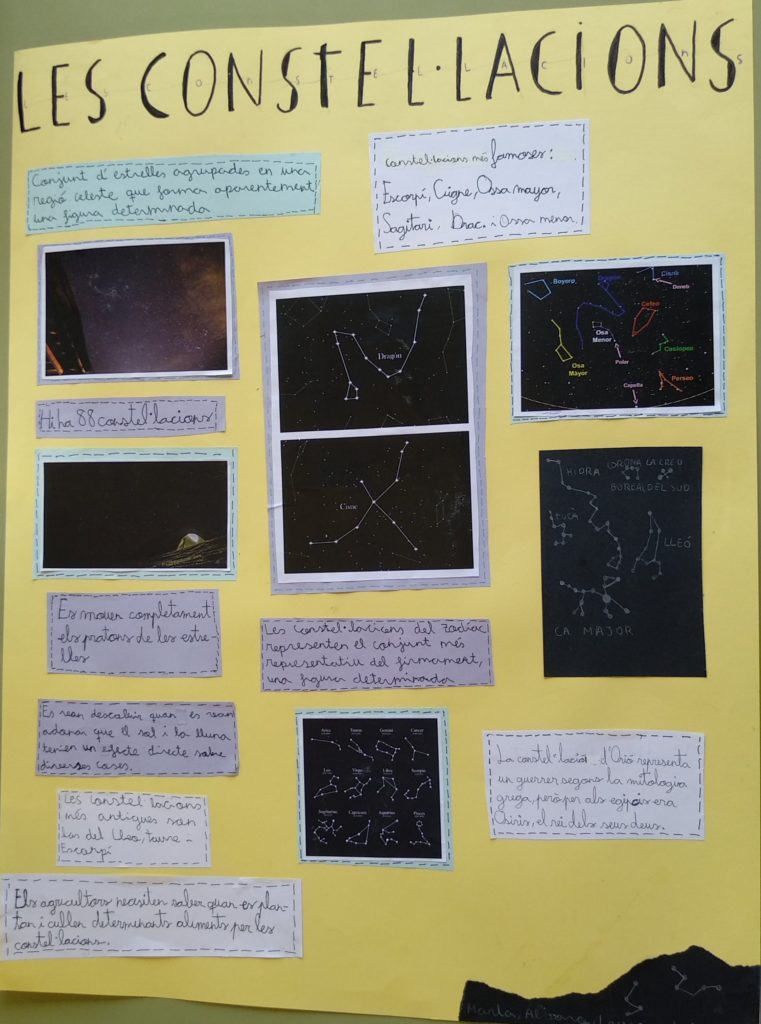 LES CONSTEL·LACIONS
Conjunt d'estrelles agrupades en una
regió celeste que forma aparentement
una figura determinada
Constel·lacions més famoses:
Escorpí, Cigne, Ossa mayor,
Sagitari, Drac. i Ossa menor.
Hi ha 88 constel·lacions
Dragón
Cisne
Boyero
Cisne
Deneb
Cefeo
Osa
Menor
Polar
Casiopea
Osa
Mayor
Capella
Perseo
HIDRA
CORONA LA CREU
BOREAL DEL SUD
LLEÓ
CA MAJOR
Es mouen completament
els pratons de les estre-
lles
Les constel·lacions del zodíac
representen el conjunt més
representatiu del firmament,
una figura determinada
Es van descobrir quan es van
adonar que el sol i la lluna
tenien un efecte directe sobre
diverses coses.
Les constel·lacions
més antigues son
las del Lleo, taure -
Escorpí
Aries Taurus Gemini Cancer
Leo Virgo Libra Scorpio
Sagittarius Capricorn Aquarius Pisces
La constel·lació d'Orió representa
un guerrer segons la mitologia
grega, però per als egipcis era
Osiris, el rei dels seus deus.
Els agricultors necisiten saber quan es plan-
tan i cullen determinants aliments per les
constel·lacions.
Marta,